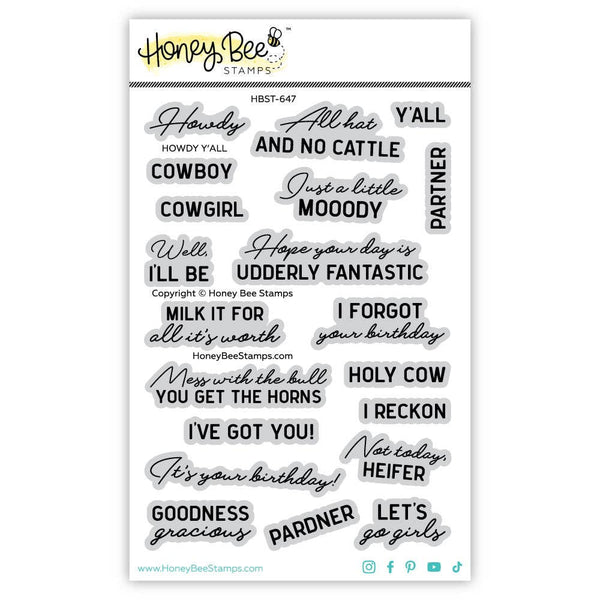 Honey Bee™
STAMPS
HBST-647
Howdy
HOWDY Y'ALL
All hat
AND NO CATTLE
Y'ALL
COWBOY
COWGIRL
Just a little
MOOODY
PARTNER
Well,
I'LL BE
Hope your day is
UDDERLY FANTASTIC
Copyright © Honey Bee Stamps
MILK IT FOR
all it's worth
I FORGOT
your birthday
HoneyBeeStamps.com
Mess with the bull
YOU GET THE HORNS
HOLY COW
I RECKON
I'VE GOT YOU!
Not today,
HEIFER
It's your birthday!
GOODNESS
gracious
PARDNER
LET'S
go girls
www.HoneyBeeStamps.com